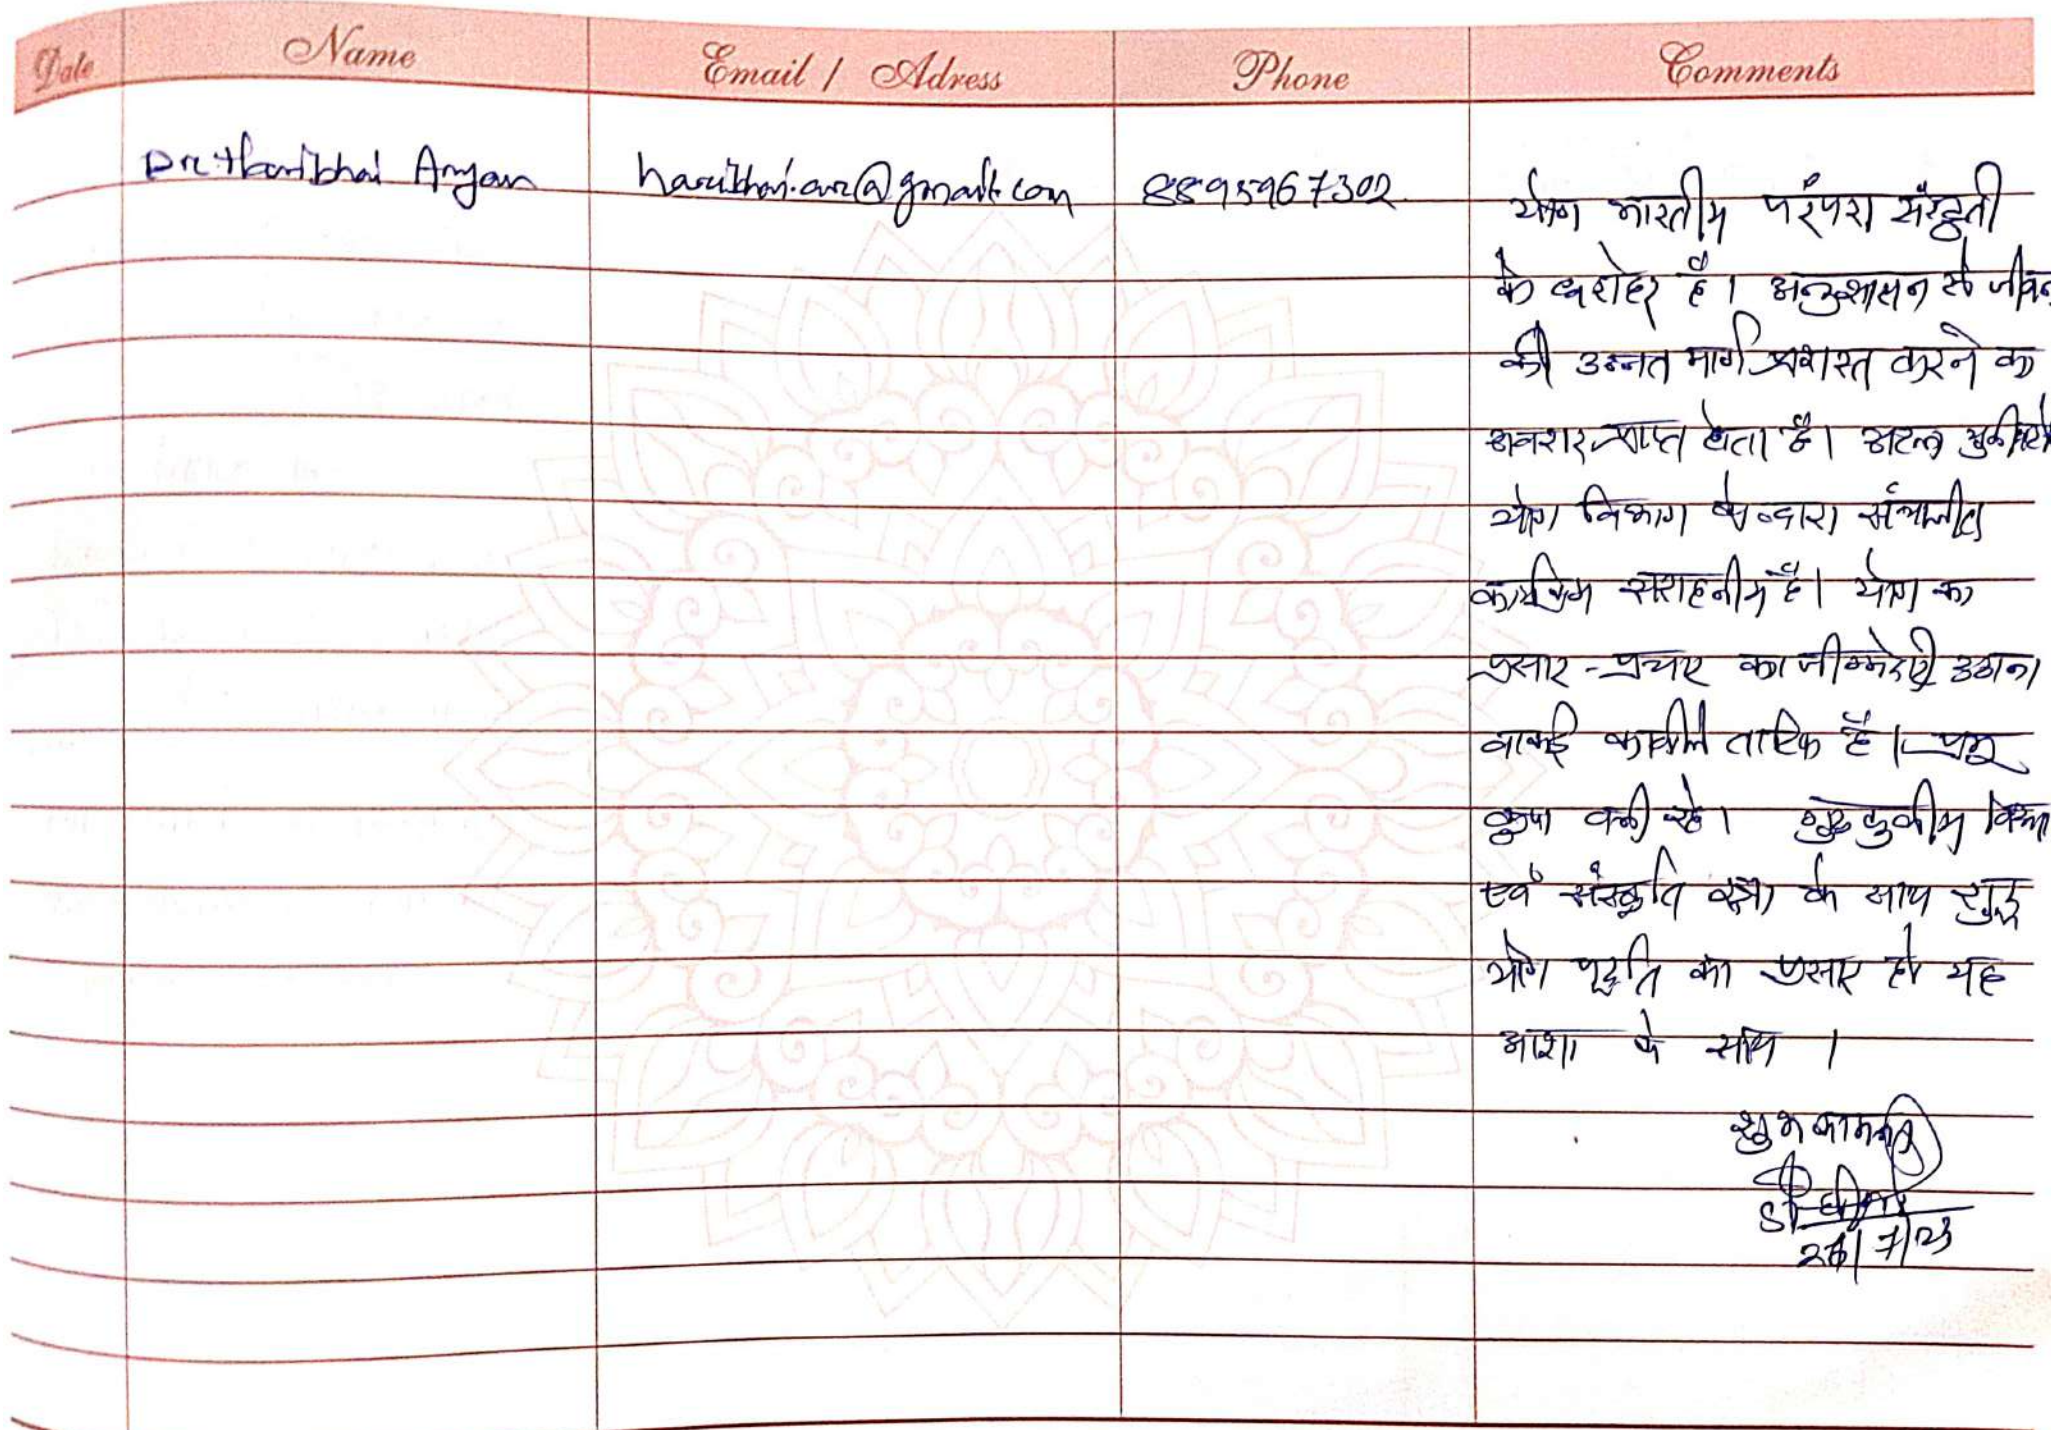 Date Name Email / Adress Phone Comments
Dr. Haribhai Aryan haribhai.avr@gmail.com 8895967302
योग भारतीय परंपरा संस्कृती
के धरोहर है। अनुशासन से जीवन
की उन्नत मार्ग प्रशस्त करने का
अवशर प्राप्त होता है। अटल
योग विभाग के द्वारा संचालीत
कार्यक्रम सराहनीय है। योग का
प्रसार - प्रचार का जीम्मेदारी उठाना
वाकई काबीले तारिफ है। प्रभु
कृपा बनी रहे। गुरुकुलीय
एवं संस्कृति के साथ शुद्ध
योग पद्धति का प्रसार हो यह
आशा के साथ ।
शुभकामना
26/7/23